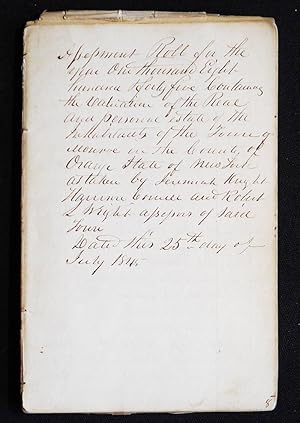 Assessment Roll for the
Year One thousand Eight
hundred Forty five Containing
the Valuation of the Real
and personal Estate of the
Inhabitants of the Town of
Monroe in the County of
Orange State of New York
as taken by Jeremiah Knight
Harrison and Robert
L Wright assessors of said
Town
Dated this 25th day of
July 1845